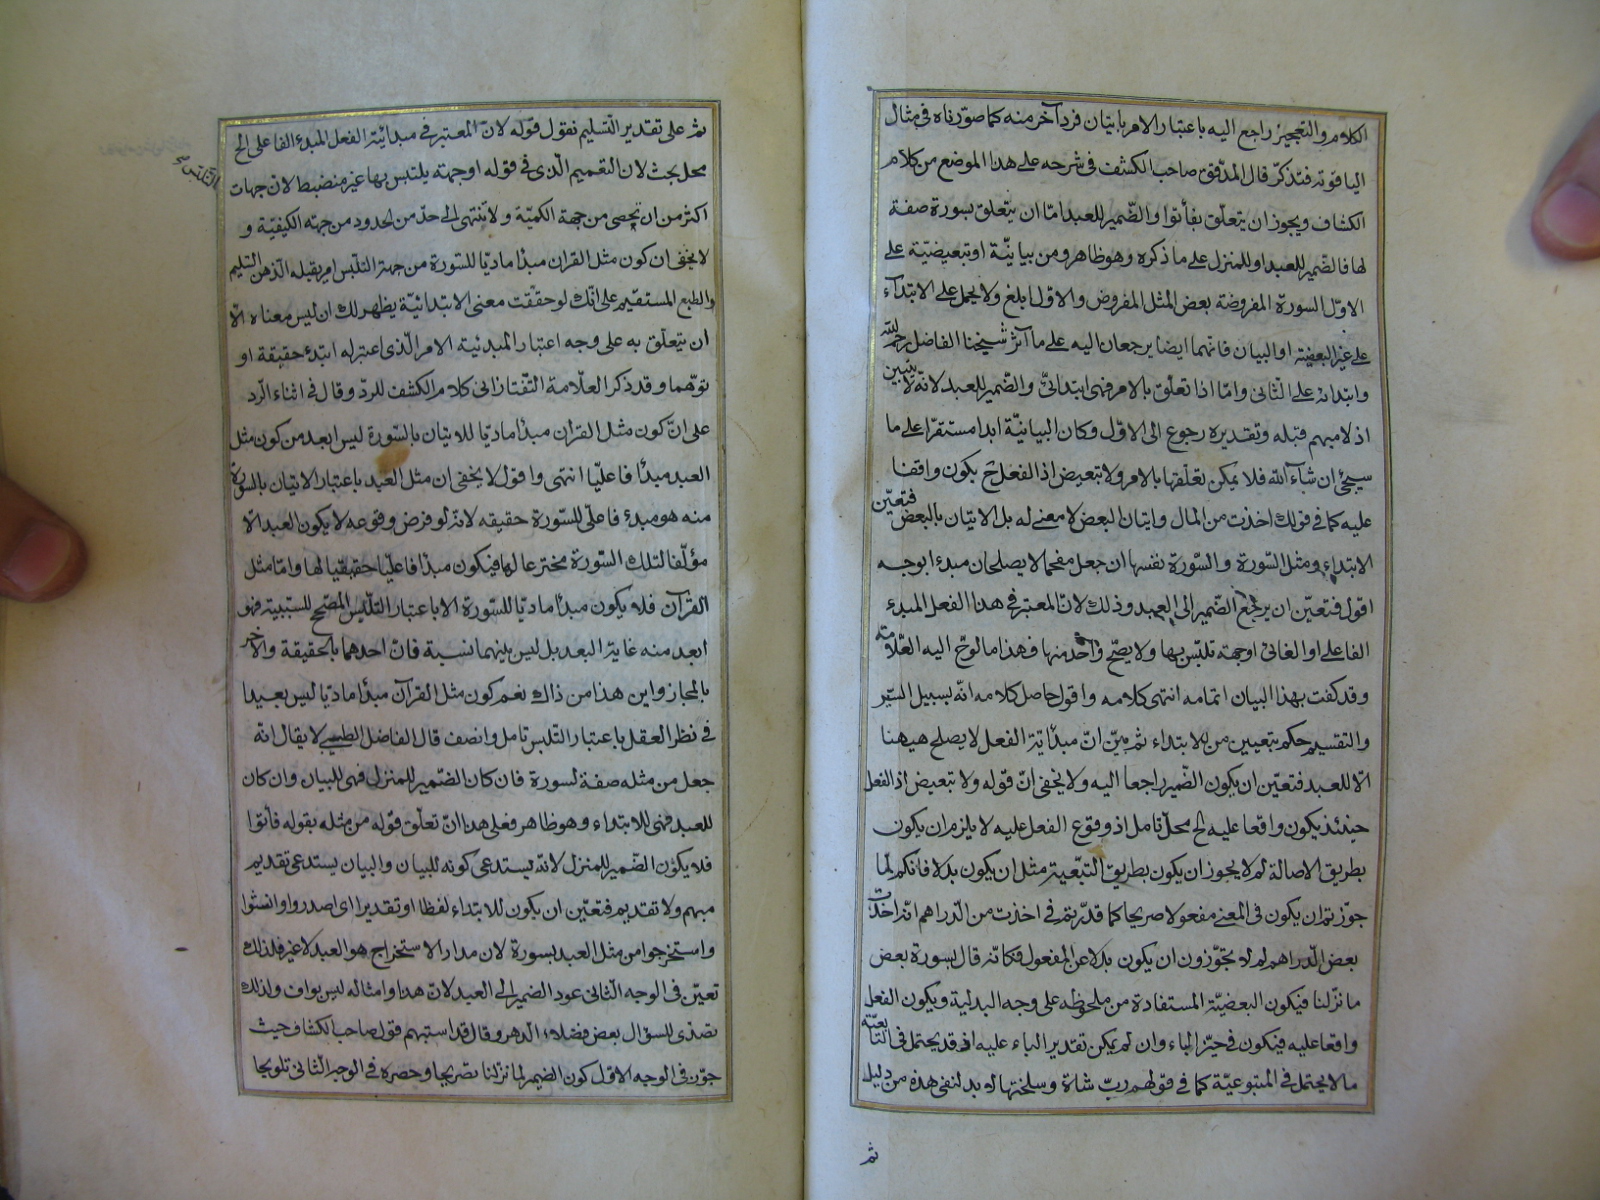 الكلام والتعجيز راجع اليه باعتبار الامر باتيان فرد آخر منه كما صوّرناه في مثال
الياقوته فتذكّر قال المدقّق صاحب الكشف في شرحه على هذا الموضع من كلام
الكشاف ويجوز ان يتعلّق بفأتوا والضّمير للعبد امّا ان يتعلّق بسورة صفة
لها فالضّمير للعبد او للمنزل على ما ذكره وهو ظاهر ومن بيانيّة او تبعيضيّة على
الاوّل السورة المفروضة بعض المثل المفروض والاوّل ابلغ ولا يحمل على الابتدآء
على غير البعضيّة او البيان فانّهما ايضا يرجعان اليه على ما آثر شيخنا الفاضل رحمه الله
وابتدائه على الثاني وامّا اذا تعلّق بالامر فهي ابتدائيّ والضّمير للعبد لانّه لا يتبين
اذ لا مبهم قبله وتقديره رجوع الى الاوّل وكان البيانيّة ابدا مستقرّا على ما
سيجئ ان شآء الله فلا يمكن تعلّقها بالامر ولا تبعيض اذ الفعل ح يكون واقفا
عليه كما في قولك اخذت من المال وايتان البعض لا معنى له بل الاتيان بالبعض فتعيّن
الابتداء ومثل السّورة والسّورة نفسها ان جعل مقحما لا يصلحان مبدءا بوجه
اقول فتعيّن ان يرجع الضّمير الى العبد وذلك لانّ المعتبر في هذا الفعل المبدء
الفاعلى او الغائى او جهة تلبّس بها ولا يصحّ واحد منها فهذا ما لوّح اليه العلّامة
وقد كفت بهذا البيان اتمامه انتهى كلامه واقول حاصل كلامه انّه بسبيل السّبر
والتقسيم حكم بتعيين من للابتداء ثم بيّن انّ مبدأيّة الفعل لا يصلح هيهنا
الّا للعبد فتعيّن ان يكون الضّمير راجعا اليه ولا يخفى انّ قوله ولا تبعيض اذ الفعل
حينئذ يكون واقعا عليه الخ محلّ تامل اذ وقوع الفعل عليه لا يلزم ان يكون
بطريق الاصالة لم لا يجوز ان يكون بطريق التبعيّة مثل ان يكون بدلا فانكم لمّا
جوّزتم ان يكون في المعنى مفعولا صريحا كما قدّرتم في اخذت من الدّراهم انّه اخذت
بعض الدّراهم لم لا تجوّزون ان يكون بدلا عن المفعول فكانّه قال بسورة بعض
ما نزّلنا فيكون البعضيّة المستفادة من ملحوظه على وجه البدلية ويكون الفعل
واقعا عليه فيكون في حيّز الباء وان لم يكن تقدير الباء عليه اذ قد يحتمل في التّابعيّة
ما لا يحتمل في المتبوعيّة كما في قولهم ربّ شاة وسلختها لا بد لنفي هذه من دليل
ثم
ثم على تقدير التّسليم نقول قوله لانّ المعتبر في مبدائيّة الفعل المبدء الفاعلى الخ
محل بحث لان التعميم الّذى في قوله او جهته يلتبس بها غير منضبط لان جهات
التّلبّس
اكثر من ان تحصى من جهة الكميّة ولا ينتهى الى حدّ من الحدود من جهته الكيفيّة و
لا يخفى ان كون مثل القران مبدأ ماديّا للسّورة من جهة التلبّس امر يقبله الذّهن السّليم
والطبع المستقيم على انّك لو حقّقت معنى الابتدائيّة يظهر لك ان ليس معناه الّا
ان يتعلّق به على وجه اعتبار المبدئيّة الامر الّذى اعتبر له ابتدء حقيقة او
توهّما وقد ذكر العلّامة التّفتازانى كلام الكشف للردّ وقال في اثناء الرّد
على انّ كون مثل القران مبدأ ماديّا للاتيان بالسّورة ليس ابعد من كون مثل
العبد مبدأ فاعليّا انتهى واقول لا يخفى ان مثل العبد باعتبار الاتيان بالسّورة
منه هو مبدء فاعلى للسّورة حقيقه لانّه لو فرض وقوعه لا يكون العبد الّا
مؤلّفا لتلك السّورة مخترعا لها فيكون مبدأ فاعليّا حقيقيا لها وامّا مثل
القرآن فلا يكون مبدأ ماديّا للسّورة الا باعتبار التلبّس المصحّح للسّببية فهو
ابعد منه غاية البعد بل ليس بينهما نسبة فانّ احدهما بالحقيقة والآخر
بالمجاز واين هذا من ذاك نعم كون مثل القرآن مبدأ ماديّا ليس بعيدا
في نظر العقل باعتبار التّلبس تامل وانصف قال الفاضل الطيبي لا يقال انّه
جعل من مثله صفة لسورة فان كان الضّمير للمنزل فهى للبيان وان كان
للعبد فهى للابتداء وهو ظاهر فعلى هذا انّ تعلّق قوله من مثله بقوله فأتوا
فلا يكون الضّمير للمنزل لانّه يستدعى كونه للبيان والبيان يستدعى تقديم
مبهم ولا تقديم فتعيّن ان يكون للابتداء لفظا او تقديرا اى اصدروا وانشئوا
واستخرجوا من مثل العبد بسورة لان مدار الاستخراج هو العبد لا غير فلذلك
تعيّن في الوجه الثّانى عود الضمير الى العبد لانّ هذا وامثاله ليس بواف ولذلك
تصدّى للسؤال بعض فضلاء الدّهر وقال قد استبهم قول صاحب الكشاف حيث
جوّز في الوجه الاوّل كون الضمير لما نزّلنا تصريحا وحصره في الوجه الثّانى تلويحا